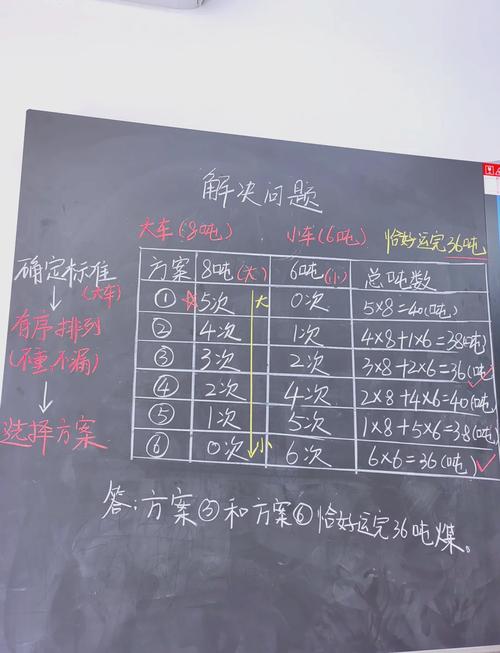 解决问题
大车(8吨) 小车(6吨) 恰好运完36吨
确定标准
(大车)
有序排列
(不重不漏)
选择方案
方案 8吨(大) 6吨(小) 总吨数
① 5次 大 0次 5×8=40(吨)
② 4次 1次 4×8+1×6=38(吨)
③ 3次 2次 3×8+2×6=36(吨)
④ 2次 4次 2×8+4×6=40(吨)
⑤ 1次 5次 1×8+5×6=38(吨)
⑥ 0次 小 6次 6×6=36(吨)
答:方案③和方案⑥恰好运完36吨煤。